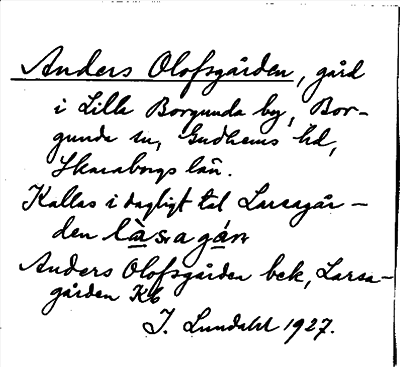 Anders Olofsgården, gård
i Lilla Borgunda by, Bor-
gunda sn, Gudhems hd,
Skaraborgs län.
Kallas i dagligt tal Larsagår-
den
Anders Olofsgården bek, Larsa-
gården Kb
J. Lundahl 1927.